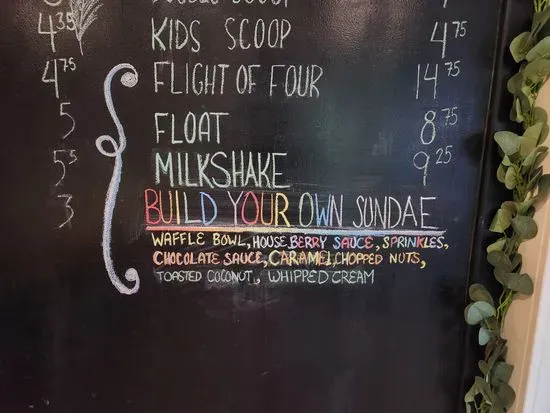 4.35 SCOOP 7
KIDS SCOOP 4 75
4 75 FLIGHT OF FOUR 14 75
5 FLOAT 8 75
5 5 MILKSHAKE 9 25
3 BUILD YOUR OWN SUNDAE
WAFFLE BOWL, HOUSE BERRY SAUCE, SPRINKLES,
CHOCOLATE SAUCE, CARAMEL, CHOPPED NUTS,
TOASTED COCONUT, WHIPPED CREAM